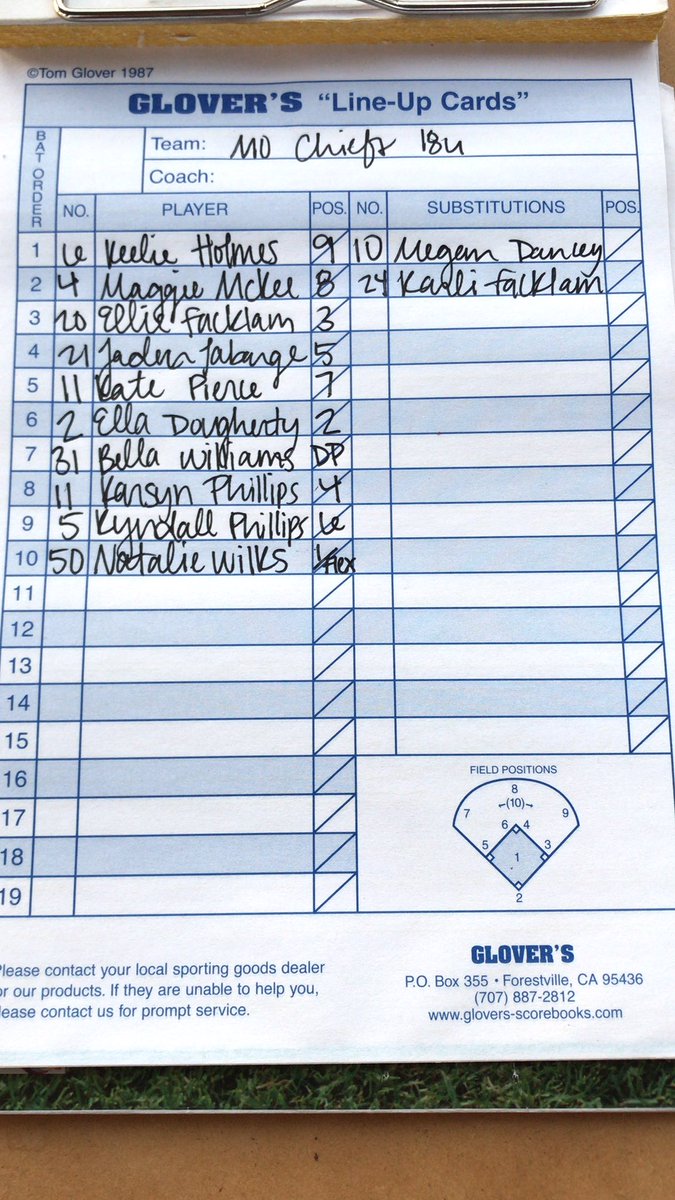 ©Tom Glover 1987
GLOVER'S "Line-Up Cards"
BAT ORDER
Team: MO Chiefs 18u
Coach:
NO. PLAYER POS. NO. SUBSTITUTIONS POS.
1 6 Keelie Holmes 9 10 Megan Dancey
2 4 Maggie McKee 8 24 Karli Facklam
3 20 Ellie Facklam 3
4 21 Jaden 5
5 11 Kate Pierce 7
6 2 Ella Dougherty 2
7 31 Bella Williams DP
8 11 Karsyn Phillips 4
9 5 Kyndall Phillips 6
10 50 Natalie Wilks 1/Flex
11
12
13
14
15
16
17
18
19
FIELD POSITIONS
8
(10)
7 9
6 4
5 3
1
2
GLOVER'S
P.O. Box 355 • Forestville, CA 95436
(707) 887-2812
www.glovers-scorebooks.com
Please contact your local sporting goods dealer
or our products. If they are unable to help you,
lease contact us for prompt service.